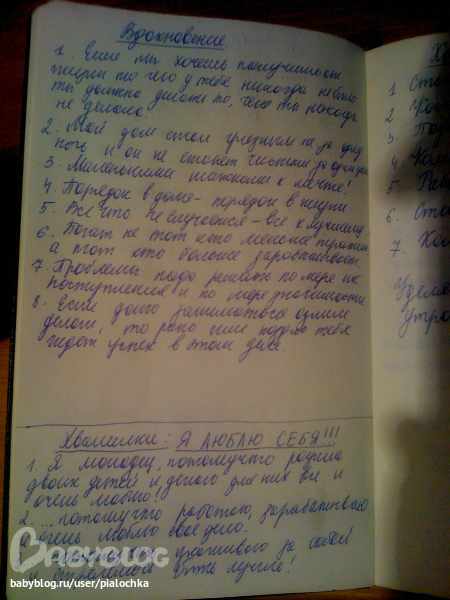 Вдохновение
1. Если ты хочешь получить от
жизни то чего у тебя никогда не было
ты должна делать то, чего ты никогда
не делала.
2. Мой дом стал грязным не за одну
ночь и он не станет чистым за один день
3. Маленькими шажками к мечте!
4. Порядок в доме - порядок в жизни
5. Всё что не случается - все к лучшему.
6. Богат не тот кто меньше тратит,
а тот кто больше зарабатывает.
7. Проблемы надо решать по мере их
поступления и по мере значимости
8. Если долго заниматься одним
делом, то рано или поздно тебя
ждет успех в этом деле.
Хвалилки: Я ЛЮБЛЮ СЕБЯ!!!
1. Я молодец, потомучто родила
двоих детей и делаю для них все и
очень люблю!
2. ... потомучто работаю, зарабатываю
очень люблю свое дело.
ухаживаю за собой
и стремлюсь быть лучше!
1. Ста
2.
3. Под
4. Ком
5. Раб
6. Сто
7.
Уделя
утро
BABYBLOG
babyblog.ru/user/pialochka